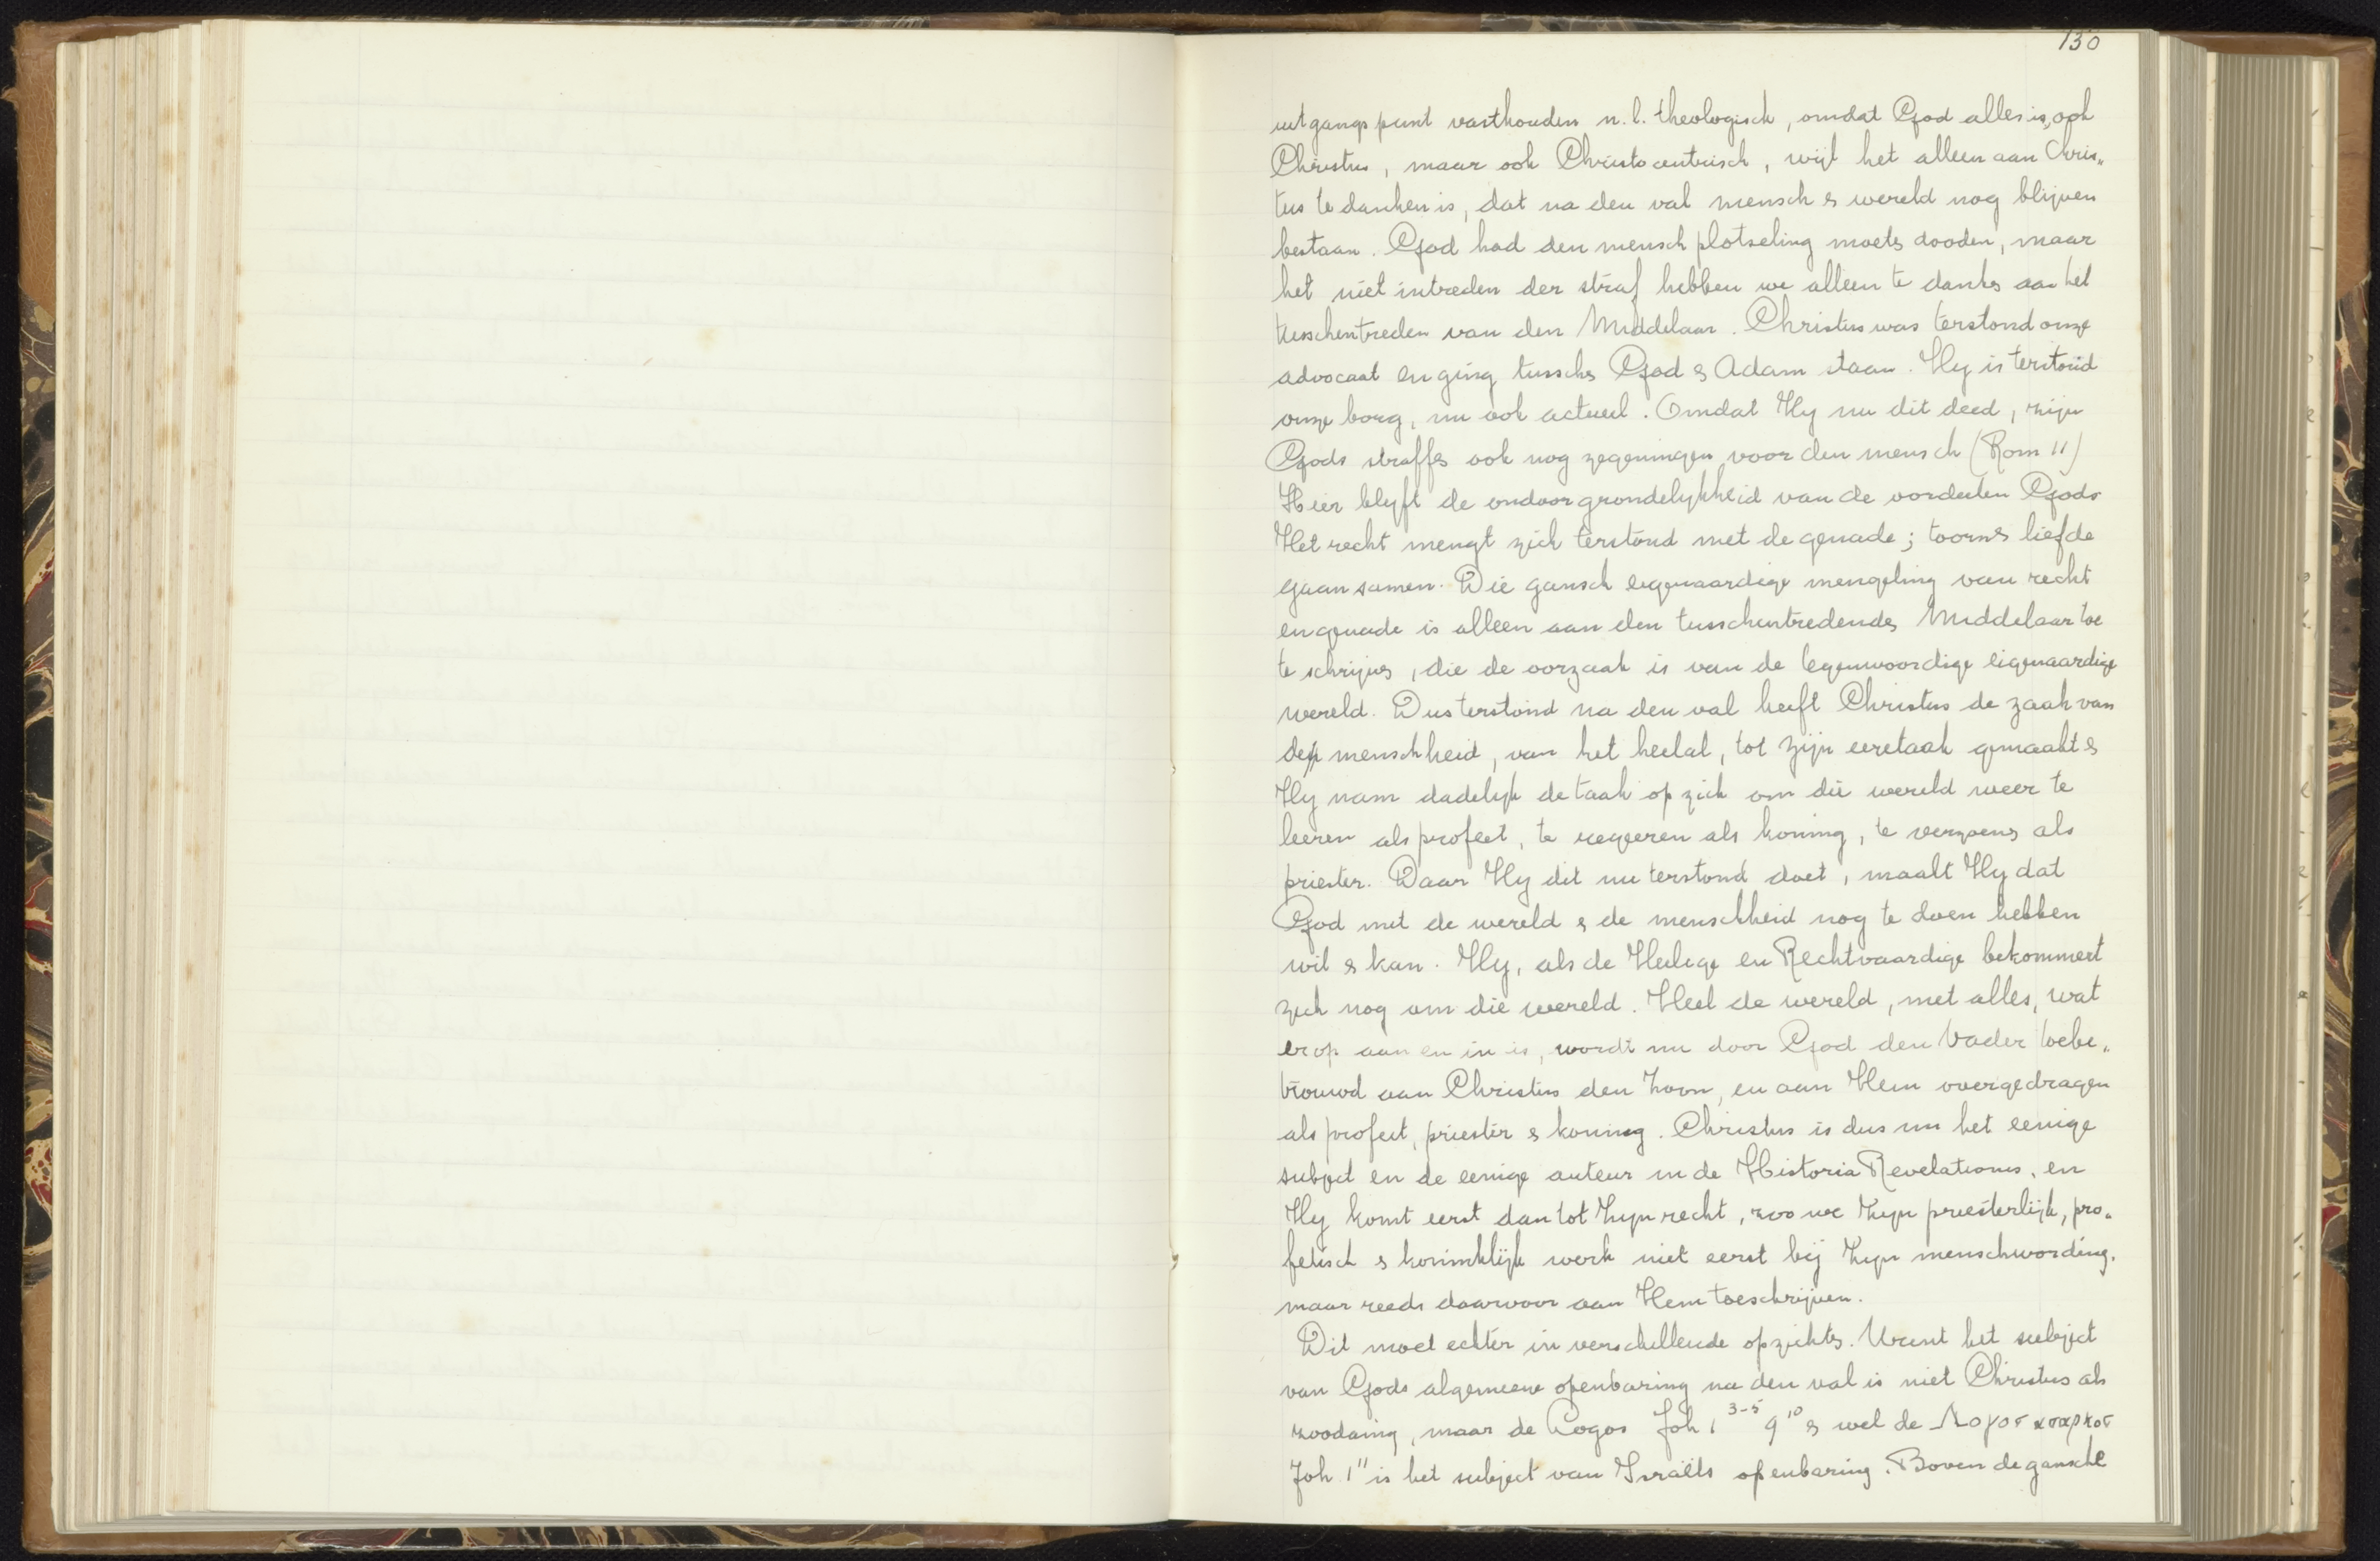 130
uitgangspunt vasthouden n.l. theologisch, omdat God alles is, ook
Christus, maar ook Christocentrisch, wijl het alleen aan Chris„
tus te danken is, dat na den val mensch & wereld nog blijven
bestaan. God had den mensch plotseling moeten dooden, maar
het niet intreden der straf hebben we alleen te danken aan het
tusschentreden van den Middelaar. Christus was terstond onze
advocaat en ging tusschen God & Adam staan. Hy is terstond
onze borg, nu ook actueel. Omdat Hy nu dit deed, zijn
Gods straffen ook nog zegeningen voor den mensch (Rom 11)
Hier blyft de ondoorgrondelykheid van de oordeelen Gods
Het recht mengt zich terstond met de genade; toorn & liefde
gaan samen. Die gansch eigenaardige mengeling van recht
en genade is alleen aan den tusschentredenden Middelaar toe
te schrijven, die de oorzaak is van de tegenwoordige eigenaardige
wereld. Dus terstond na den val heeft Christus de zaak van
de menschheid, van het heelal, tot zijn eeretaak gemaakt &
Hy nam dadelyk de taak op zich om die wereld weer te
leeren als profeet, te regeeren als koning, te verzoenen als
priester. Daar Hy dit nu terstond doet, maakt Hy dat
God met de wereld & de menschheid nog te doen hebben
wil & kan. Hy, als de Heilige en Rechtvaardige bekommert
zich nog om die wereld. Heel de wereld, met alles, wat
er op aan en in is, wordt nu door God den Vader toebe„
trouwd aan Christus den Zoon, en aan Hem overgedragen
als profeet, priester & koning. Christus is dus nu het eenige
subject en de eenige auteur in de Historia Revelationis, en
Hy komt eerst dan tot Zyn recht, zoo we Zyn priesterlijk, pro„
fetisch & koninklijk werk niet eerst bij Zyn menschwording,
maar reeds daarvoor aan Hem toeschrijven.
Dit moet echter in verschillende opzichten. Want het subject
van Gods algemeene openbaring na den val is niet Christus als
zoodanig, maar de Logos Joh 1 3-5 9 10 & wel de Λογοσ ασαρκοσ
Joh 1 11 is het subject van Israëls openbaring. Boven de gansche